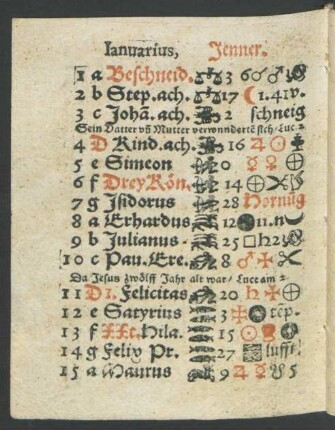 Ianuarius, Jenner.
1 a Beschneid. 3 6 ☌ ♂
2 b Step. ach. 17 ☾ 1. 41 v.
3 c Johã. ach. 2 schneig
Sein Vatter vñ Mutter verwunderte sich / Luc. 2
4 D Kind. ach. 16 ♃ ☉
5 e Simeon 0 ☿ ♀ ⊕
6 f Drey Kön. 14 ⊕
7 g Isidorus 28 Hornug
8 a Erhardus 12 11. n
9 b Julianus 25 □ ♄ 23
10 c Pau. Ere. 8 ♂
Da Jesus zwölff Jahr alt war / Luce am 2
11 D 1. Felicitas 20 ♄ ⊕
12 e Satyrius 3
13 f XXt. Hila. 15 ☉
14 g Felix Pr. 27 lufft
15 a Maurus 9 ♃ ☿ 5